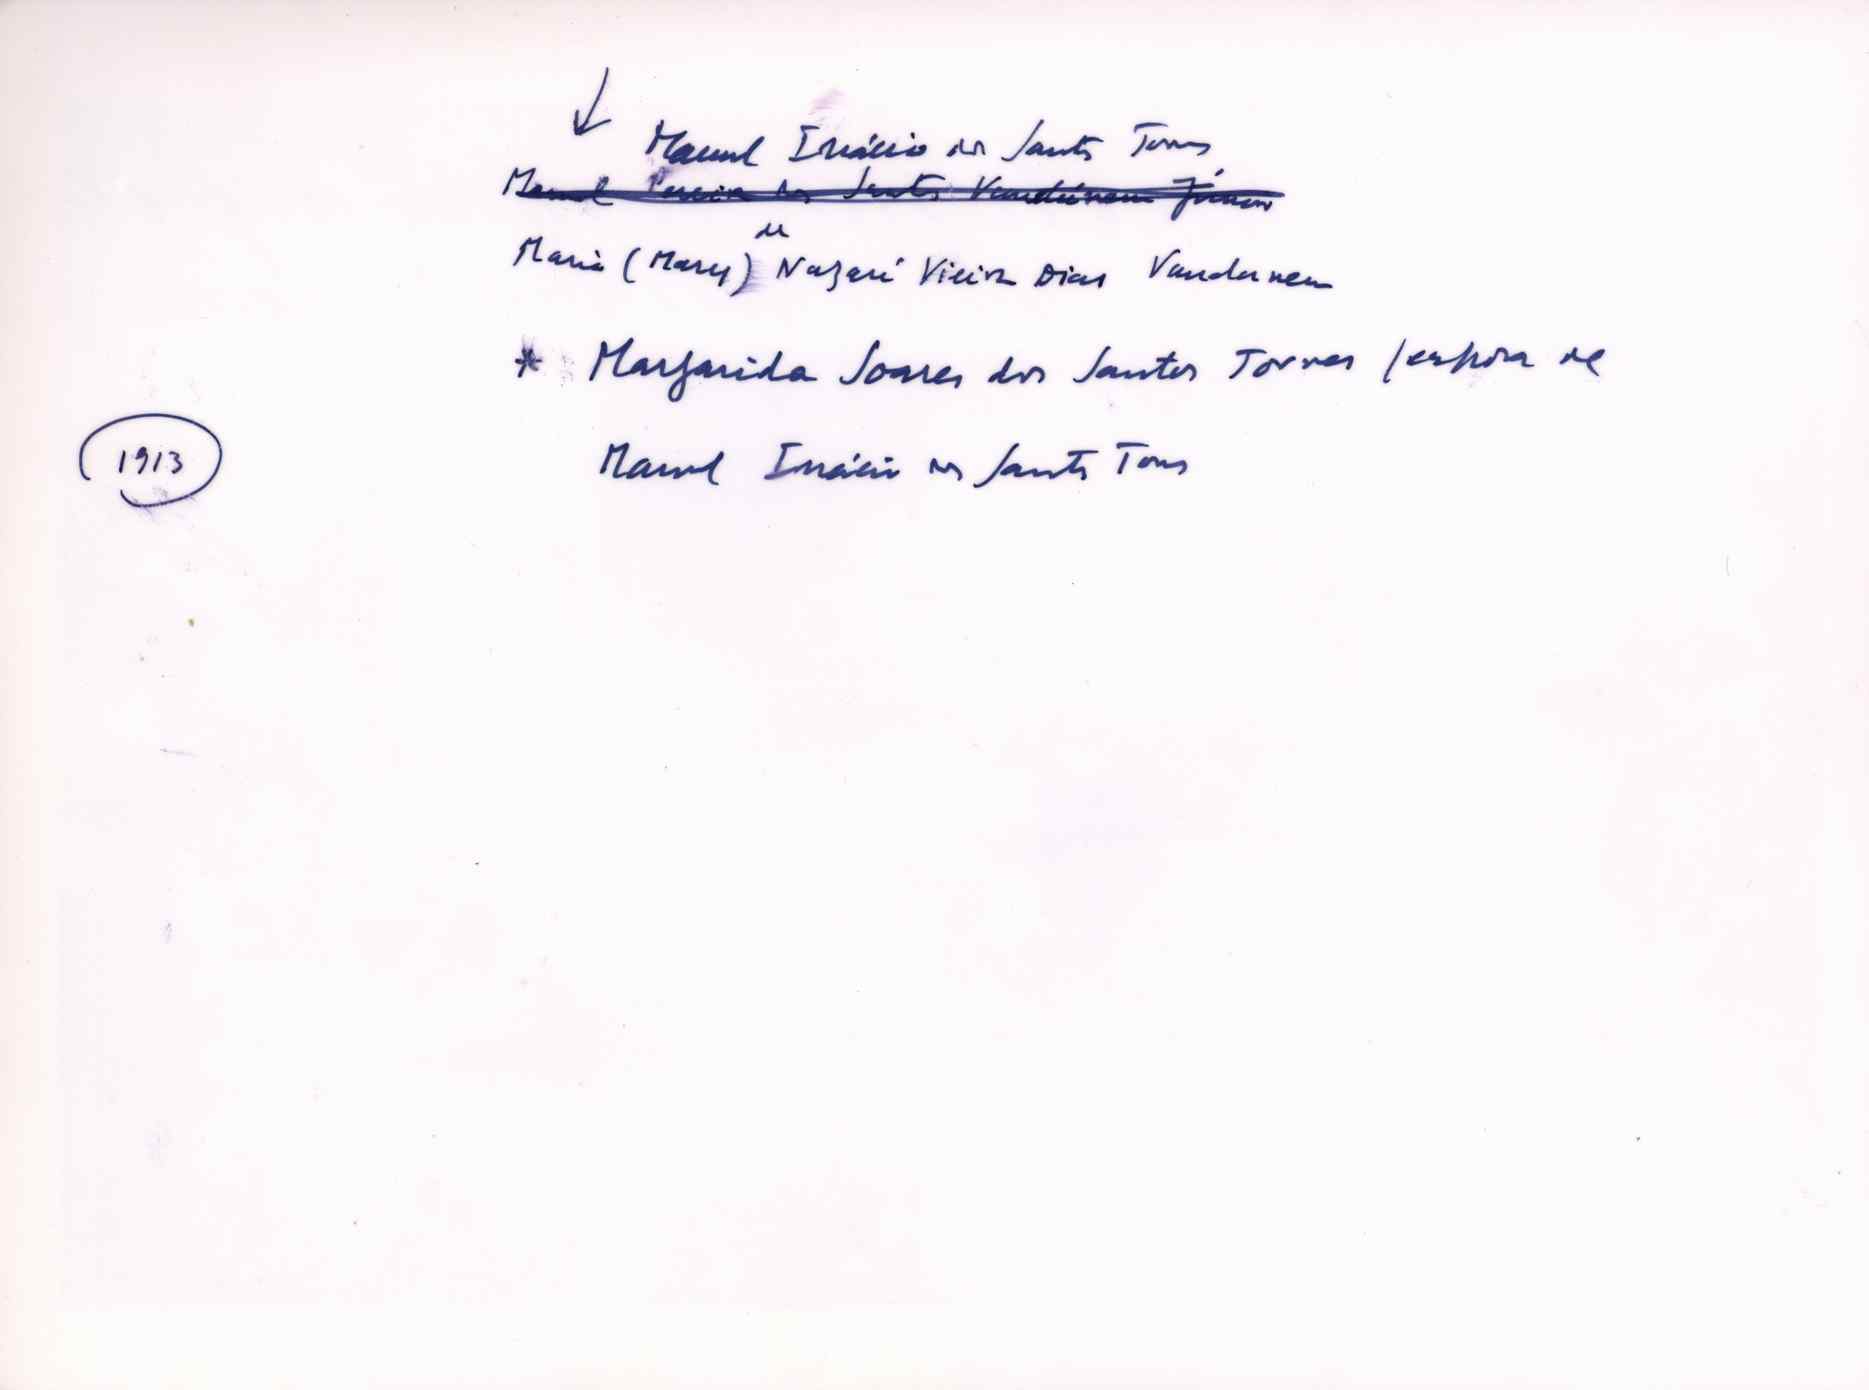 Manuel Inácio dos Santos Torres
Manuel Pereira dos Santos Vandúnem Júnior
Maria (Mary) de Nazaré Vieira Dias Vandunem
* Margarida Soares dos Santos Torres / esposa de
1913
Manuel Inácio dos Santos Torres